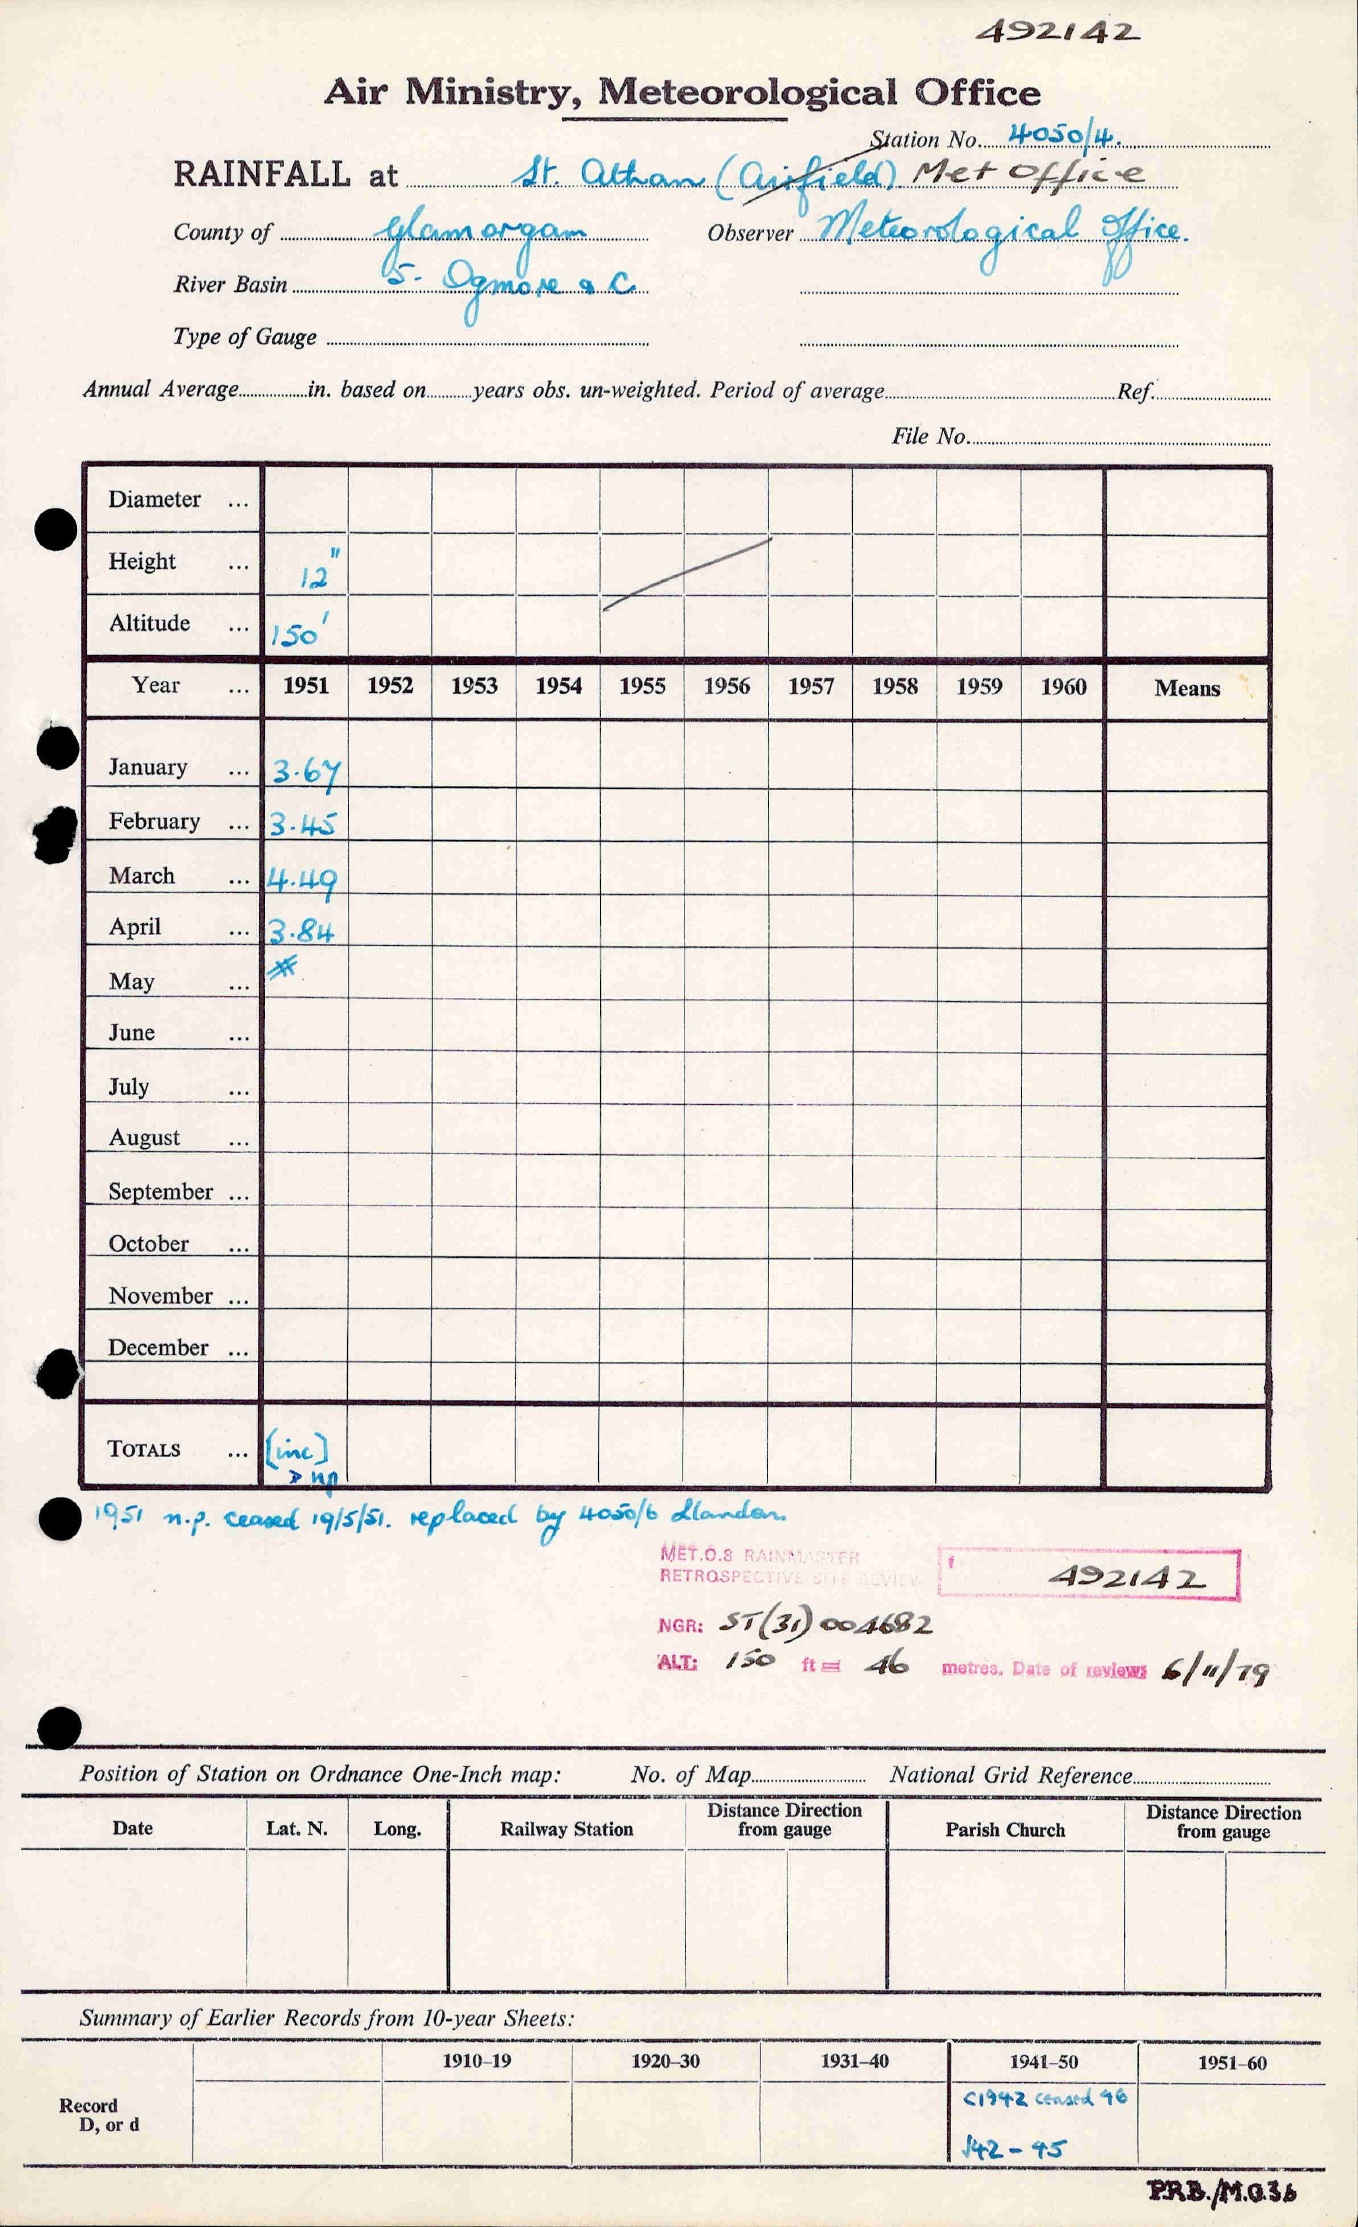 492142
Air Ministry, Meteorological Office
Station No. 4050/4.
RAINFALL at St. Athan (Airfield) Met Office
County of Glamorgan Observer Meteorological Office.
River Basin 5- Ogmore & C.
Type of Gauge
Annual Average in. based on years obs. un-weighted. Period of average Ref.
File No.
Diameter ...
Height ... 12"
Altitude ... 150'
Year ... 1951 1952 1953 1954 1955 1956 1957 1958 1959 1960 Means
January ... 3.67
February ... 3.45
March ... 4.49
April ... 3.84
May ... *
June ...
July ...
August ...
September ...
October ...
November ...
December ...
TOTALS ... [inc]
> np
1951 n.p. ceased 19/5/51. replaced by 4050/6 Llandon.
MET.O.8 RAINMASTER
RETROSPECTIVE SITE REVIEW 492142
NGR: ST(31) 004682
ALT: 150 ft = 46 metres. Date of review: 6/11/79
Position of Station on Ordnance One-Inch map: No. of Map National Grid Reference
Date Lat. N. Long. Railway Station Distance Direction from gauge Parish Church Distance Direction from gauge
Summary of Earlier Records from 10-year Sheets:
1910–19 1920–30 1931–40 1941–50 1951–60
Record
D, or d
C1942 ceased 46
√42 - 45
P.R.B./M.O.36